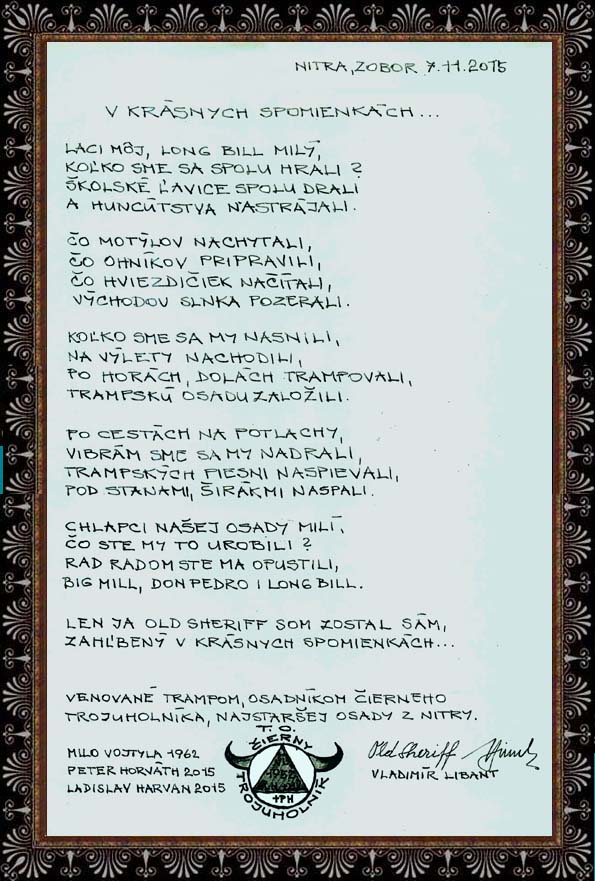 NITRA, ZOBOR 7.11.2015
V KRÁSNYCH SPOMIENKÁCH...
LACI MÔJ, LONG BILL MILÝ,
KOĽKO SME SA SPOLU HRALI ?
ŠKOLSKÉ ĽAVICE SPOLU DRALI
A HUNCÚTSTVA NASTRÁJALI.
ČO MOTÝĽOV NACHYTALI,
ČO OHNÍKOV PRIPRAVILI,
ČO HVIEZDIČIEK NAČÍTALI,
VÝCHODOV SLNKA POZERALI.
KOĽKO SME SA MY NASNILI,
NA VÝLETY NACHODILI,
PO HORÁCH, DOLÁCH TRAMPOVALI,
TRAMPSKÚ OSADU ZALOŽILI.
PO CESTÁCH NA POTLACHY,
VIBRÁM SME SA MY NADRALI,
TRAMPSKÝCH PIESNI NASPIEVALI,
POD STANAMI, ŠIRÁKMI NASPALI.
CHLAPCI NAŠEJ OSADY MILÍ,
ČO STE MY TO UROBILI ?
RAD RADOM STE MA OPUSTILI,
BIG MILL, DON PEDRO I LONG BILL.
LEN JA OLD SHERIFF SOM ZOSTAL SÁM,
ZAHĽBENÝ V KRÁSNYCH SPOMIENKACH...
VENOVANÉ TRAMPOM, OSADNÍKOM ČIERNEHO
TROJUHOLNÍKA, NAJSTARŠEJ OSADY Z NITRY.
MILO VOJTYLA 1962
PETER HORVÁTH 2015
LADISLAV HARVAN 2015
T.O.
ČIERNY
TROJUHOLNÍK
Old Sheriff
VLADIMÍR LIBANT